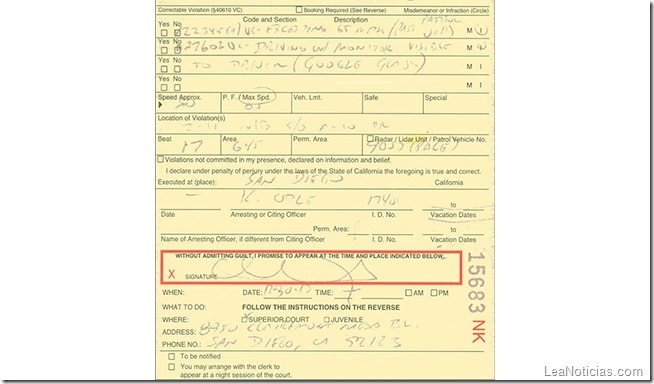 Correctable Violation (§40610 VC) Booking Required (See Reverse) Misdemeanor or Infraction (Circle)
Yes No Code and Section Description
M I
27602 VC - DRIVING W/ MONITOR VISIBLE M I
Yes No TO DRIVER (GOOGLE GLASS) M I
Yes No M I
Speed Approx. P. F. / Max Spd. Veh. Lmt. Safe Special
65
Location of Violation(s)
Beat Area Perm. Area Radar / Lidar Unit / Patrol Vehicle No.
17 645
Violations not committed in my presence, declared on information and belief.
I declare under penalty of perjury under the laws of the State of California the foregoing is true and correct.
Executed at (place): SAN DIEGO California
K. 1740 to
Date Arresting or Citing Officer I. D. No. Vacation Dates
Perm. Area: to
Name of Arresting Officer, if different from Citing Officer I. D. No. Vacation Dates
WITHOUT ADMITTING GUILT, I PROMISE TO APPEAR AT THE TIME AND PLACE INDICATED BELOW.
X SIGNATURE
WHEN: DATE: TIME: AM PM
WHAT TO DO: FOLLOW THE INSTRUCTIONS ON THE REVERSE
WHERE: SUPERIOR COURT JUVENILE
ADDRESS: CLAIREMONT MESA BL.
PHONE NO.: SAN DIEGO, CA 92123
To be notified
You may arrange with the clerk to
appear at a night session of the court.
15683 NK
LeaNoticias.com